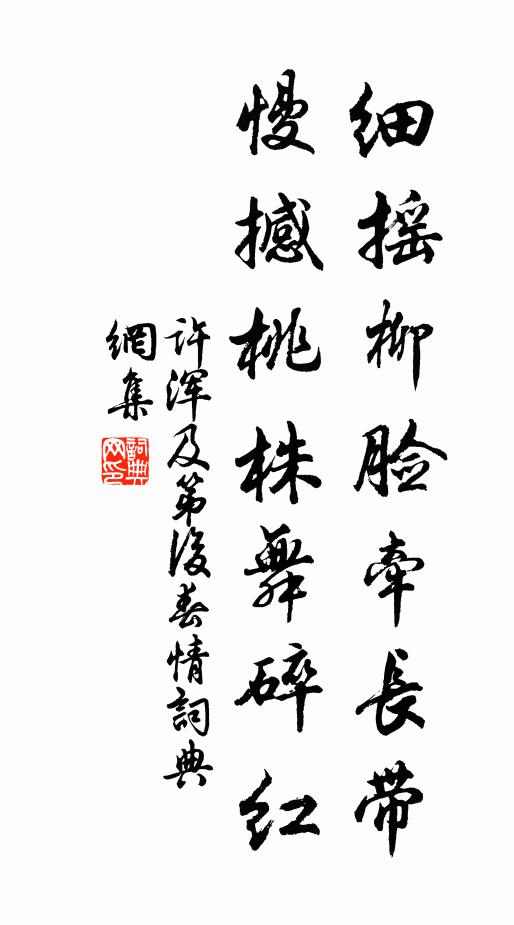 细摇柳脸牵長带
慢撼桃株舞碎红
许浑及第後春情詞典
網集
詞典网印